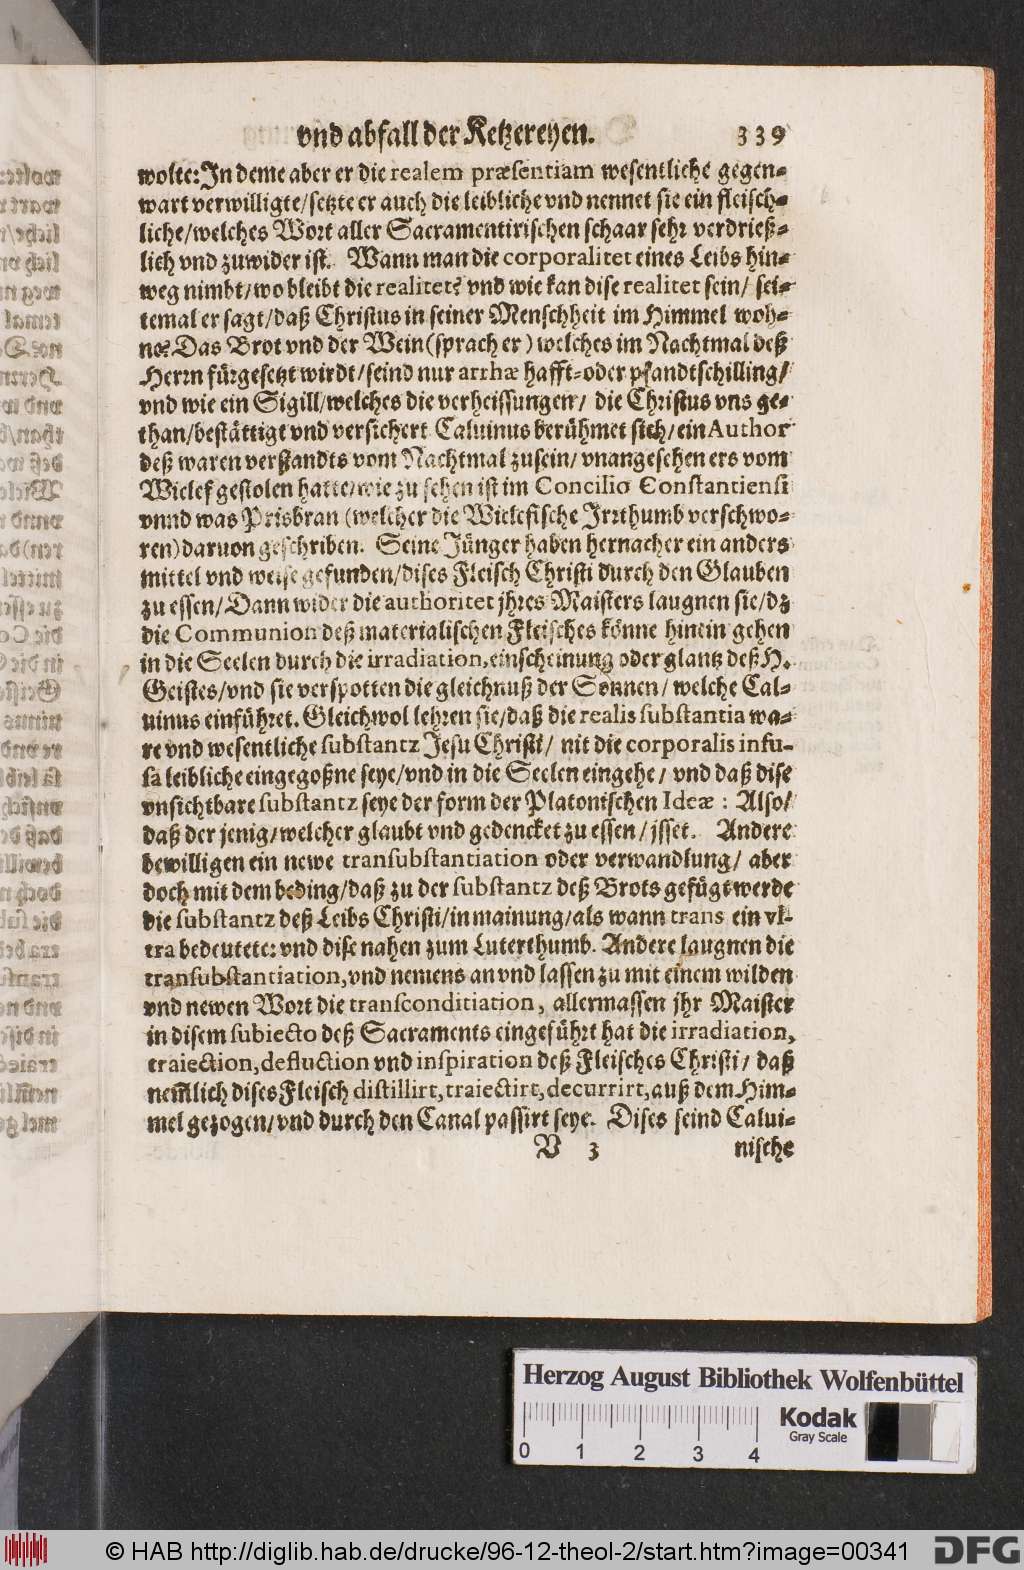 vnd abfall der Ketzereyen. 339
wolte: In deme aber er die realem præsentiam wesentliche gegen-
wart verwilligte/setzte er auch die leibliche vnd nennet sie ein fleisch-
liche/welches Wort aller Sacramentirischen schaar sehr verdrieß-
lich vnd zuwider ist. Wann man die corporalitet eines Leibs hin-
weg nimbt/wo bleibt die realitet? vnd wie kan dise realitet sein/ sei-
temal er sagt/daß Christus in seiner Menschheit im Himmel woh-
ne? Das Brot vnd der Wein (sprach er) welches im Nachtmal deß
Herrn fürgesetzt wirdt/seind nur arrhæ hafft-oder pfandtschilling/
vnd wie ein Sigill/welches die verheissungen/ die Christus vns ge-
than/bestättigt vnd versichert Caluinus berühmet sich/ein Author
deß waren verstandts vom Nachtmal zusein/vnangesehen ers vom
Wiclef gestolen hatte/wie zu sehen ist im Concilio Constantiensi
vnnd was Prisbran (welcher die Wiclefische Irrthumb verschwo-
ren) daruon geschriben. Seine Jünger haben hernacher ein anders
mittel vnd weise gefunden/dises Fleisch Christi durch den Glauben
zu essen/Dann wider die authoritet jhres Maisters laugnen sie/dz
die Communion deß materialischen Fleisches könne hinein gehen
in die Seelen durch die irradiation, einscheinung oder glantz deß H.
Geistes/vnd sie verspotten die gleichnuß der Sonnen/ welche Cal-
uinus einführet. Gleichwol lehren sie/daß die realis substantia wa-
re vnd wesentliche substantz Jesu Christi/ nit die corporalis infu-
sa leibliche eingegoßne seye/vnd in die Seelen eingehe/ vnd daß dise
vnsichtbare substantz seye der form der Platonischen Ideæ: Also/
daß der jenig/welcher glaubt vnd gedencket zu essen/ jsset. Andere
bewilligen ein newe transubstantiation oder verwandlung/ aber
doch mit dem beding/daß zu der substantz deß Brots gefügt werde
die substantz deß Leibs Christi/in mainung/als wann trans ein vl-
tra bedeutete: vnd dise nahen zum Luterthumb. Andere laugnen die
transubstantiation, vnd nemens an vnd lassen zu mit einem wilden
vnd newen Wort die transconditiation, allermassen jhr Maister
in disem subiecto deß Sacraments eingeführt hat die irradiation,
traiection, defluction vnd inspiration deß Fleisches Christi/ daß
nem̃lich dises Fleisch distillirt, traiectirt, decurrirt, auß dem Him-
mel gezogen/vnd durch den Canal passirt seye. Dises seind Calui-
V 3 nische
Herzog August Bibliothek Wolfenbüttel
0 1 2 3 4
Kodak
Gray Scale
© HAB http://diglib.hab.de/drucke/96-12-theol-2/start.htm?image=00341
DFG